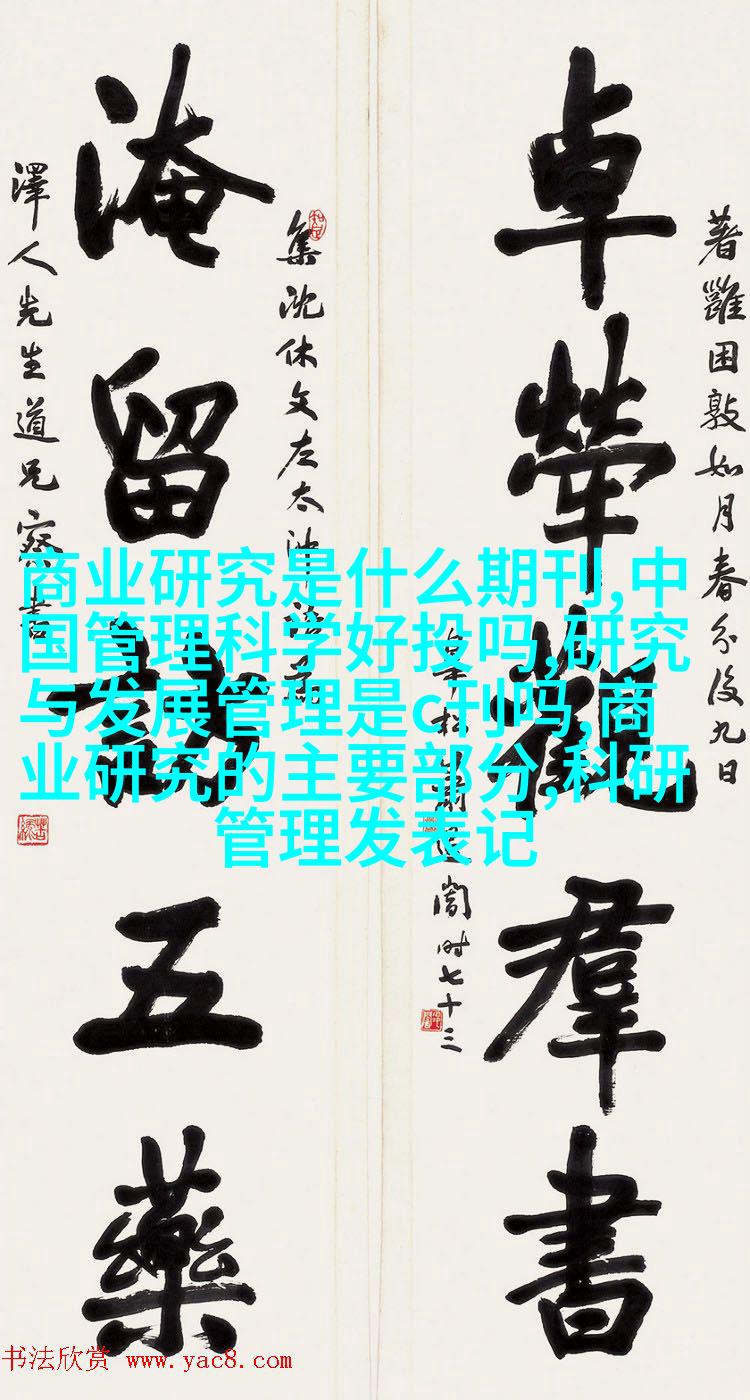 著雝困敦如月春分後九日
卓犖觀羣書
闇时七十三
集沈休文左太沖
淹留訪五藥
澤人先生道兄察書
商业研究是什么期刊,中
国管理科学好投吗,研究
与发展管理是c刊吗,商
业研究的主要部分,科研
管理发表记
书法欣赏 www.yac8.com